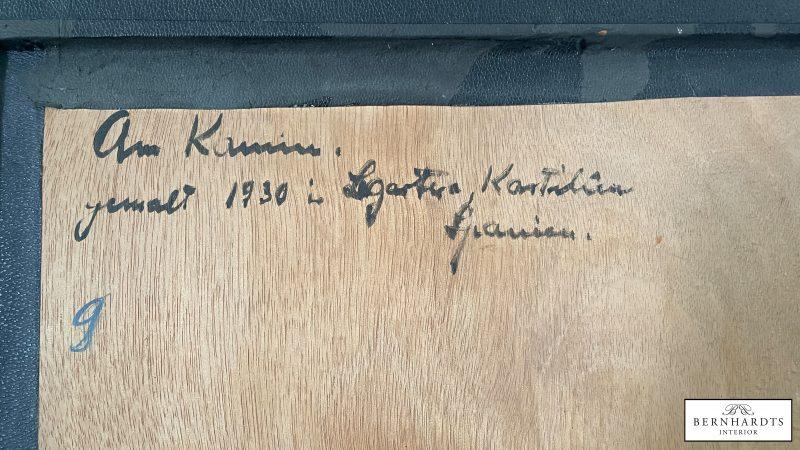 Am Kamin.
gemalt 1930 in Lagartera, Kastilien
Spanien.
9
BERNHARDTS
INTERIOR